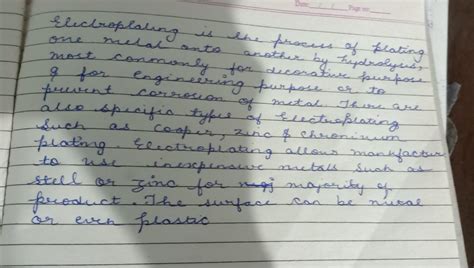 Date: / / Page no:
Electroplating is the process of plating
one metal onto another by hydrolysis,
most commonly for decorative purpose
g for engineering purpose or to
prevent corrosion of metal. There are
also specific types of Electroplating
Such as cooper, zinc & chroninum
plating. Electroplating allow manfactur
to use inexpensive metals such as
stell or zinc for majority of
product. The surface can be nural
or even plastic